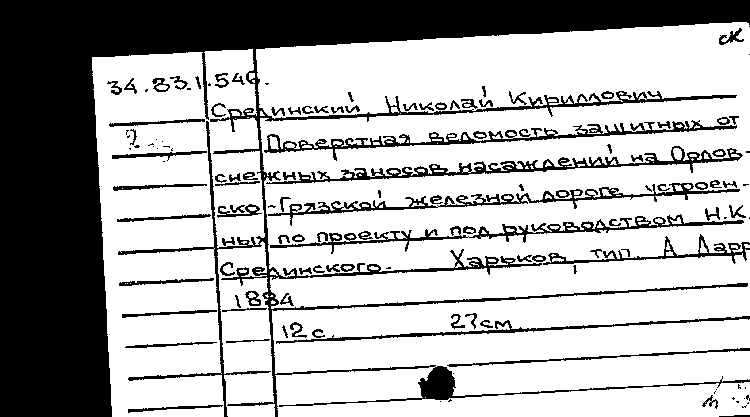 ск
34.83.1.546.
Срединский, Николай Кириллович
2
Поверстная ведомость защитных от
снежных заносов насаждений на Орлов-
ско-Грязской железной дороге, устроен-
ных по проекту и под руководством Н.К.
Срединского. Харьков, тип. А Дарр
1884.
12 с. 27 см